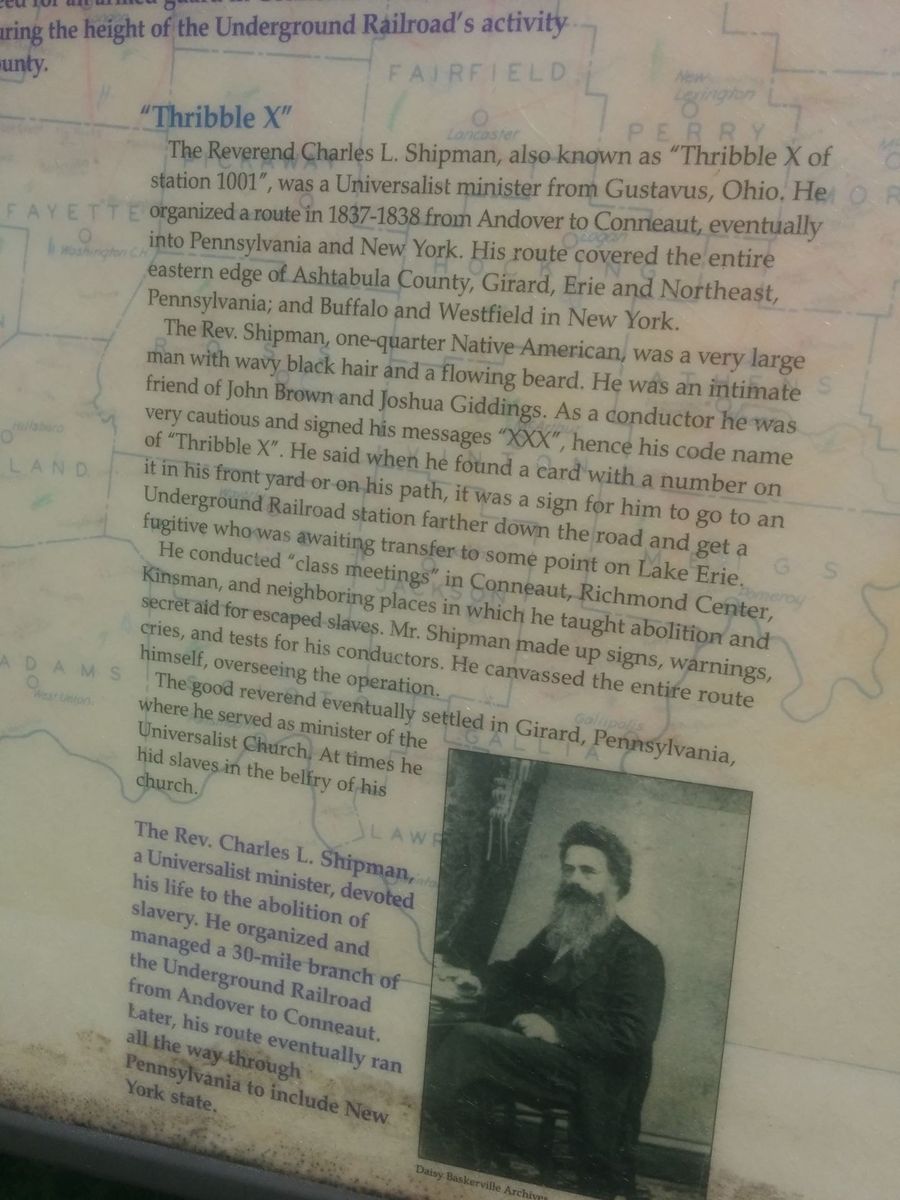 uring the height of the Underground Railroad's activity
ounty.
"Thribble X"
The Reverend Charles L. Shipman, also known as "Thribble X of
station 1001", was a Universalist minister from Gustavus, Ohio. He
organized a route in 1837-1838 from Andover to Conneaut, eventually
into Pennsylvania and New York. His route covered the entire
eastern edge of Ashtabula County, Girard, Erie and Northeast,
Pennsylvania; and Buffalo and Westfield in New York.
The Rev. Shipman, one-quarter Native American, was a very large
man with wavy black hair and a flowing beard. He was an intimate
friend of John Brown and Joshua Giddings. As a conductor he was
very cautious and signed his messages "XXX", hence his code name
of "Thribble X". He said when he found a card with a number on
it in his front yard or on his path, it was a sign for him to go to an
Underground Railroad station farther down the road and get a
fugitive who was awaiting transfer to some point on Lake Erie.
He conducted "class meetings" in Conneaut, Richmond Center,
Kinsman, and neighboring places in which he taught abolition and
secret aid for escaped slaves. Mr. Shipman made up signs, warnings,
cries, and tests for his conductors. He canvassed the entire route
himself, overseeing the operation.
The good reverend eventually settled in Girard, Pennsylvania,
where he served as minister of the
Universalist Church. At times he
hid slaves in the belfry of his
church.
The Rev. Charles L. Shipman,
a Universalist minister, devoted
his life to the abolition of
slavery. He organized and
managed a 30-mile branch of
the Underground Railroad
from Andover to Conneaut.
Later, his route eventually ran
all the way through
Pennsylvania to include New
York state.
Daisy Baskerville Archives
FAIRFIELD
New
Lexington
Lancaster
PERRY
FAYETTE
Washington C.H.
Logan
Hillsboro
LAND
MEIGS
Pomeroy
JACKSON
ADAMS
West Union
Gallipolis
GALLIA
LAWR